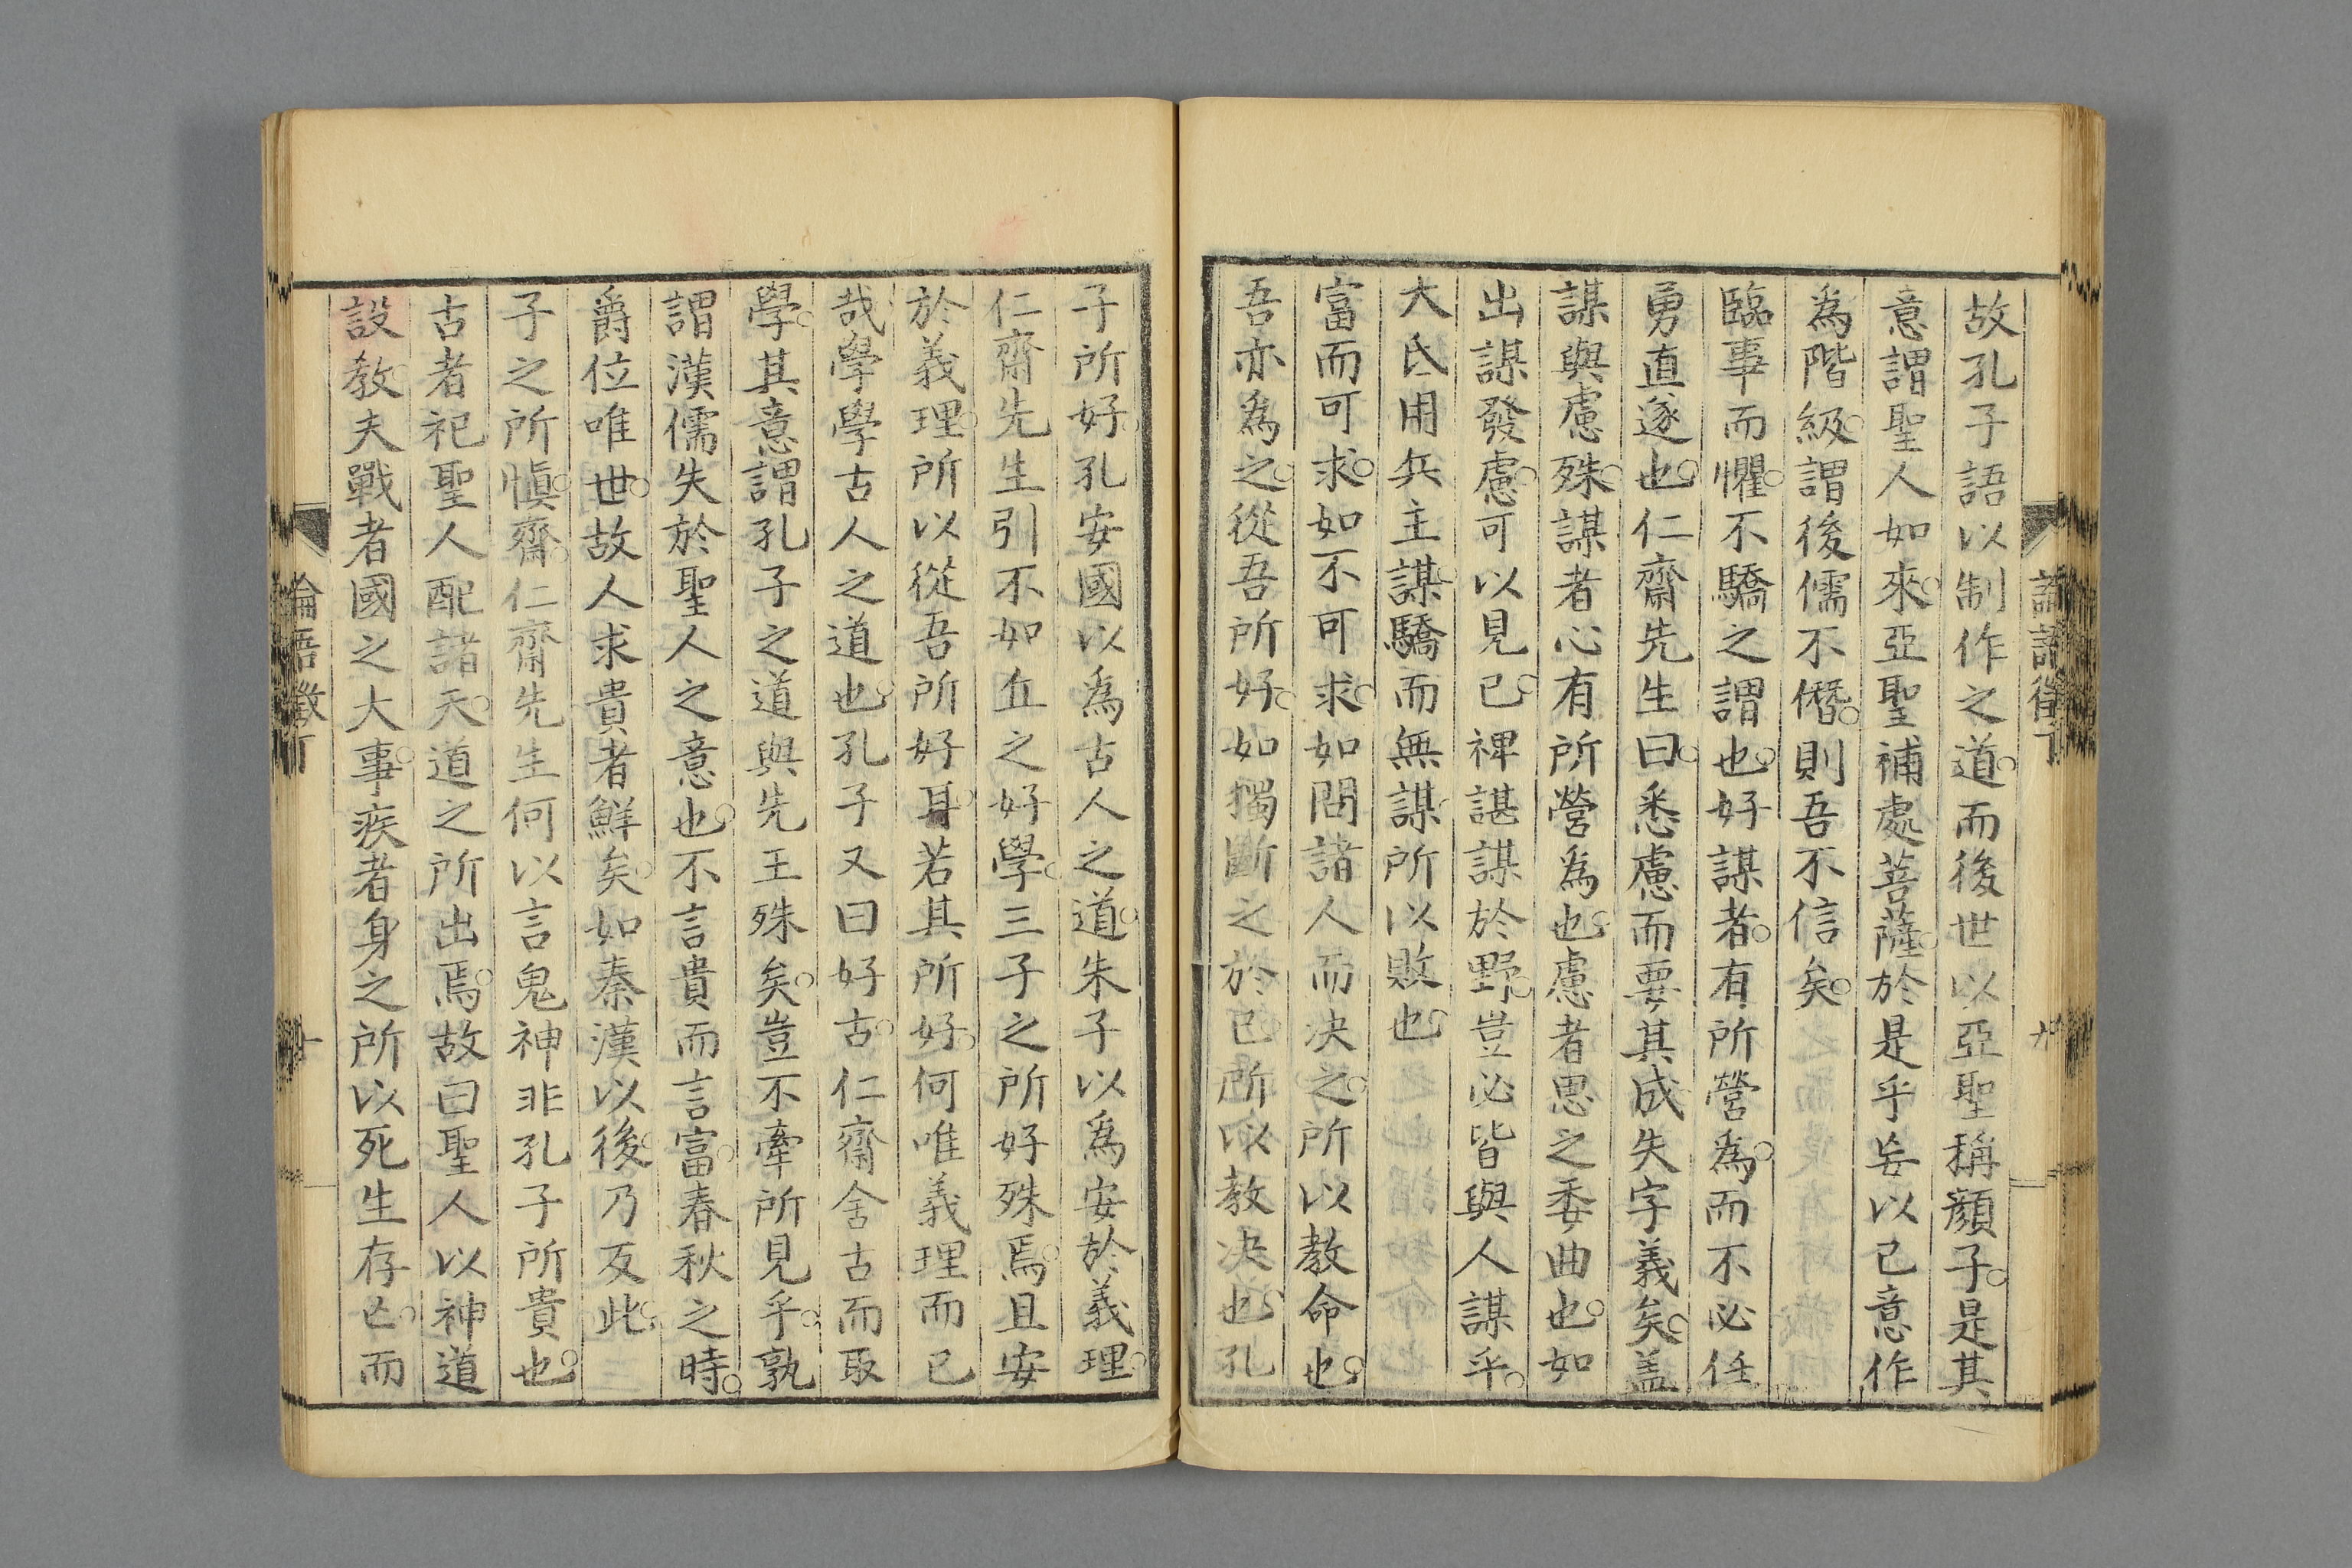 論語徵丁
九
故孔子語以制作之道。而後世以亞聖稱顏子。是其
意謂聖人如來。亞聖補處菩薩。於是乎妄以己意作
為階級。謂後儒不僭。則吾不信矣。
臨事而懼。不驕之謂也。好謀者。有所營為。而不必任
勇直遂也。仁齋先生曰。悉慮而要其成。失字義矣。盖
謀與慮殊。謀者心有所營為也。慮者思之委曲也。如
出謀發慮。可以見已。裨諶謀於野。豈必皆與人謀乎。
大氐用兵主謀。驕而無謀。所以敗也。
富而可求。如不可求。如問諸人而决之。所以教命也。
吾亦為之。從吾所好。如獨斷之於己。所以教决也。孔
子所好。孔安國以為古人之道。朱子以為安於義理。
仁齋先生引不如丘之好學。三子之所好殊焉。且安
於義理。所以從吾所好耳。若其所好。何唯義理而已
哉。學學古人之道也。孔子又曰好古。仁齋舍古而取
學。其意謂孔子之道與先王殊矣。豈不牽所見乎。孰
謂漢儒失於聖人之意也。不言貴而言富。春秋之時。
爵位唯世。故人求貴者鮮矣。如秦漢以後。乃反此。
子之所慎齋。仁齋先生何以言鬼神非孔子所貴也。
古者祀聖人配諸天。天道之所出焉。故曰聖人以神道
設教。夫戰者國之大事。疾者身之所以死生存亡。而
論語徵丁
十